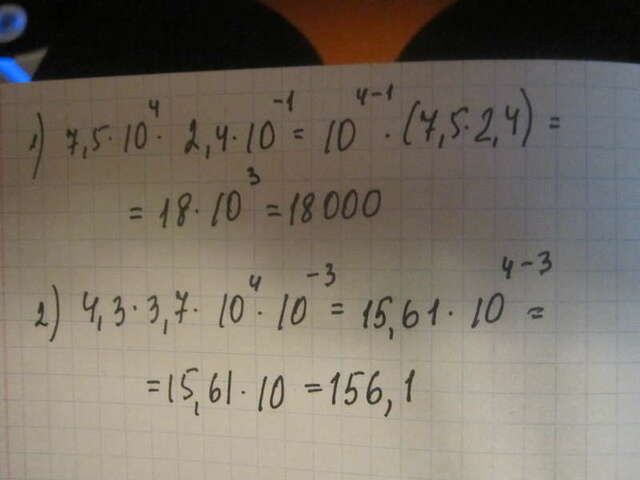 1) 7,5·10⁴· 2,4·10⁻¹ = 10⁴⁻¹ · (7,5·2,4) =
= 18·10³ = 18000
2) 4,3·3,7· 10⁴·10⁻³ = 15,61·10⁴⁻³ =
= 15,61·10 = 156,1